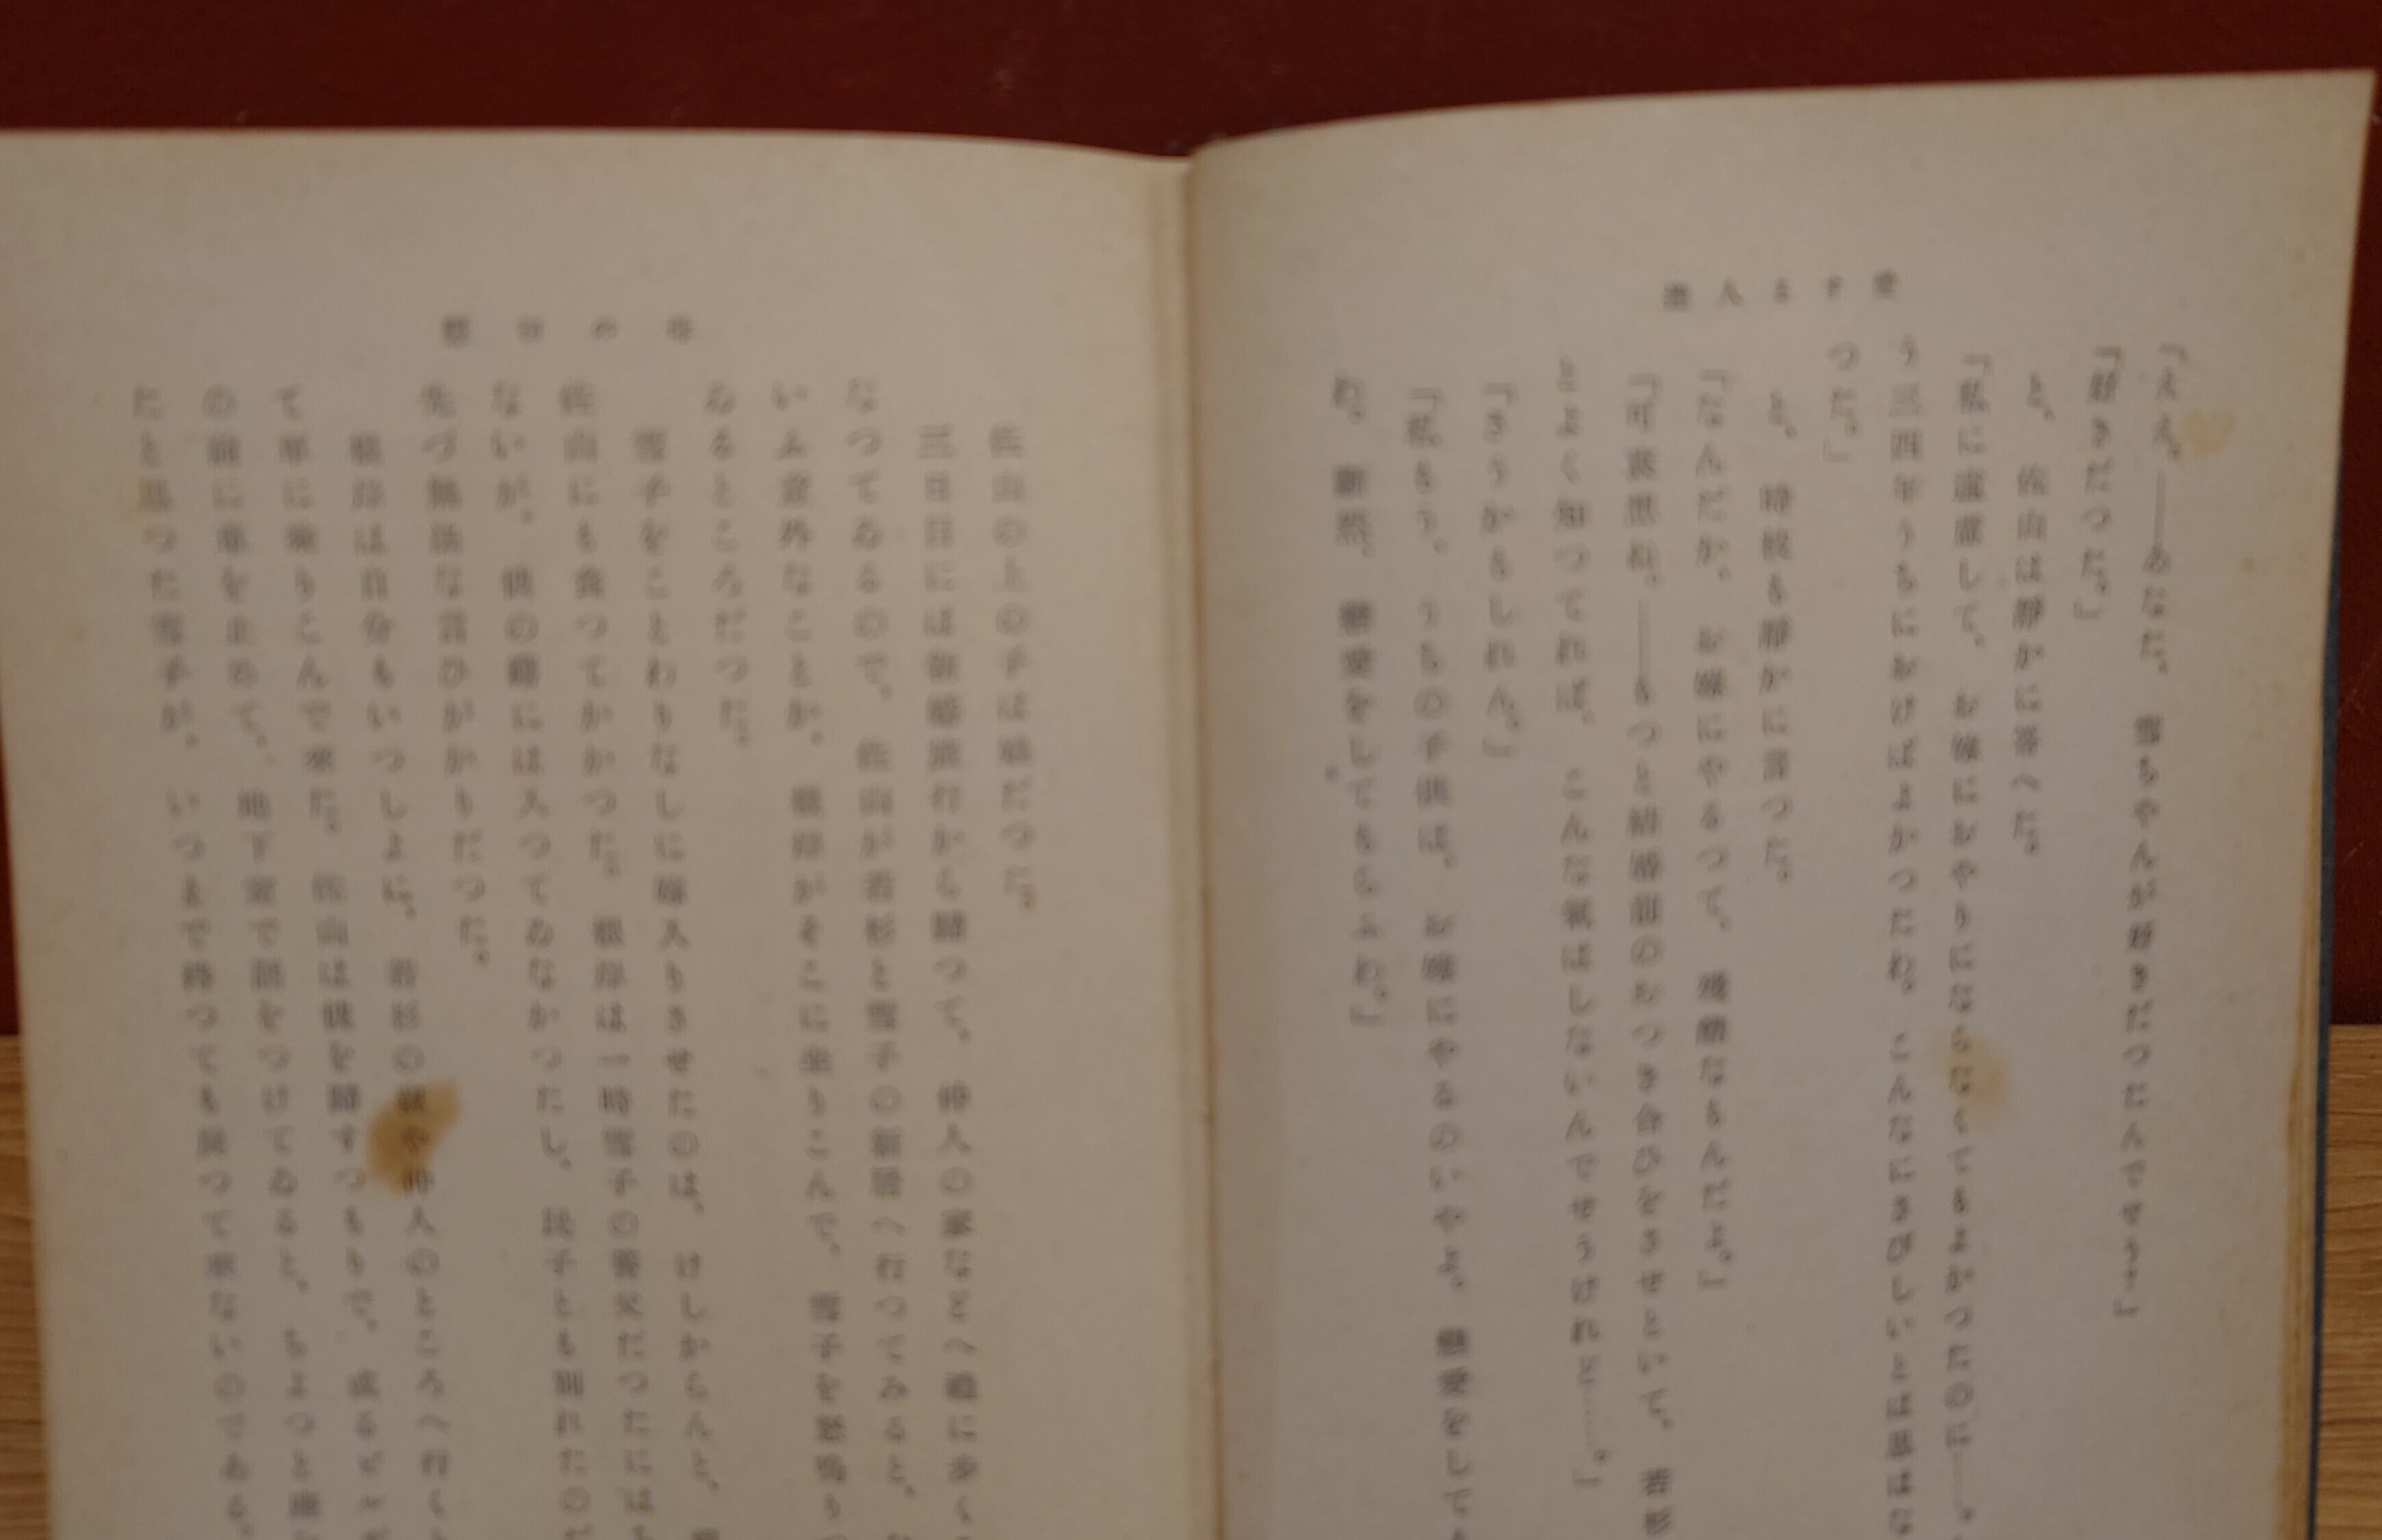 愛する人達
「ええ。――あなた、雪ちやんが好きだつたんでせう?」
「好きだつた。」
と、佐山は靜かに答へた。
「私に遠慮して、お嫁におやりにならなくてもよかつたのに――。
う三四年うちにおけばよかつたわ。こんなにさびしいとは思はな
つた。」
と、時枝も靜かに言つた。
「なんだか、お嫁にやるつて、殘酷なもんだよ。」
「可哀想ね。――もつと結婚前のおつき合ひをさせといて、若杉
とよく知つてれば、こんな氣はしないんでせうけれど……。」
「さうかもしれん。」
「私もう、うちの子供は、お嫁にやるのいやよ。戀愛をして
わ。斷然、戀愛をしてもらふわ。」
母の初戀
佐山の上の子は娘だつた。
三日目には新婚旅行から歸つて、仲人の家などへ禮に歩く
なつてゐるので、佐山が若杉と雪子の新居へ行つてみると、
いふ意外なことか、根岸がそこに坐りこんで、雪子を怒鳴り
ゐるところだつた。
雪子をことわりなしに嫁入りさせたのは、けしからんと、
佐山にも食つてかかつた。根岸は一時雪子の養父だつたには
ないが、彼の籍には入つてゐなかつたし、民子とも別れたの
先づ無法な言ひがかりだつた。
根岸は自分もいつしよに、若杉の親や仲人のところへ行くと
て車に乘りこんで來た。佐山は彼を歸すつもりで、或るビル
の前に車を止めて、地下室で話をつけてゐると、ちよつと
たと思つた雪子が、いつまで待つても戻つて來ないのである。